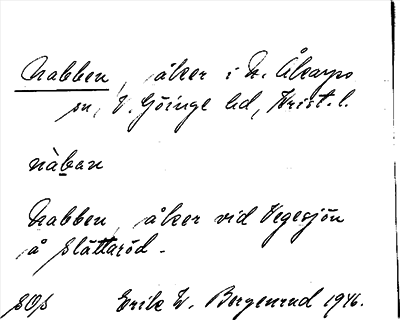 Nabben, åker i N. Åkarps
sn, V. Göinge hd, Krist. l.
nàban
Nabben, åker vid Vegesjön
å Slättaröd.
SOS Erik W. Bergenrud 1946.